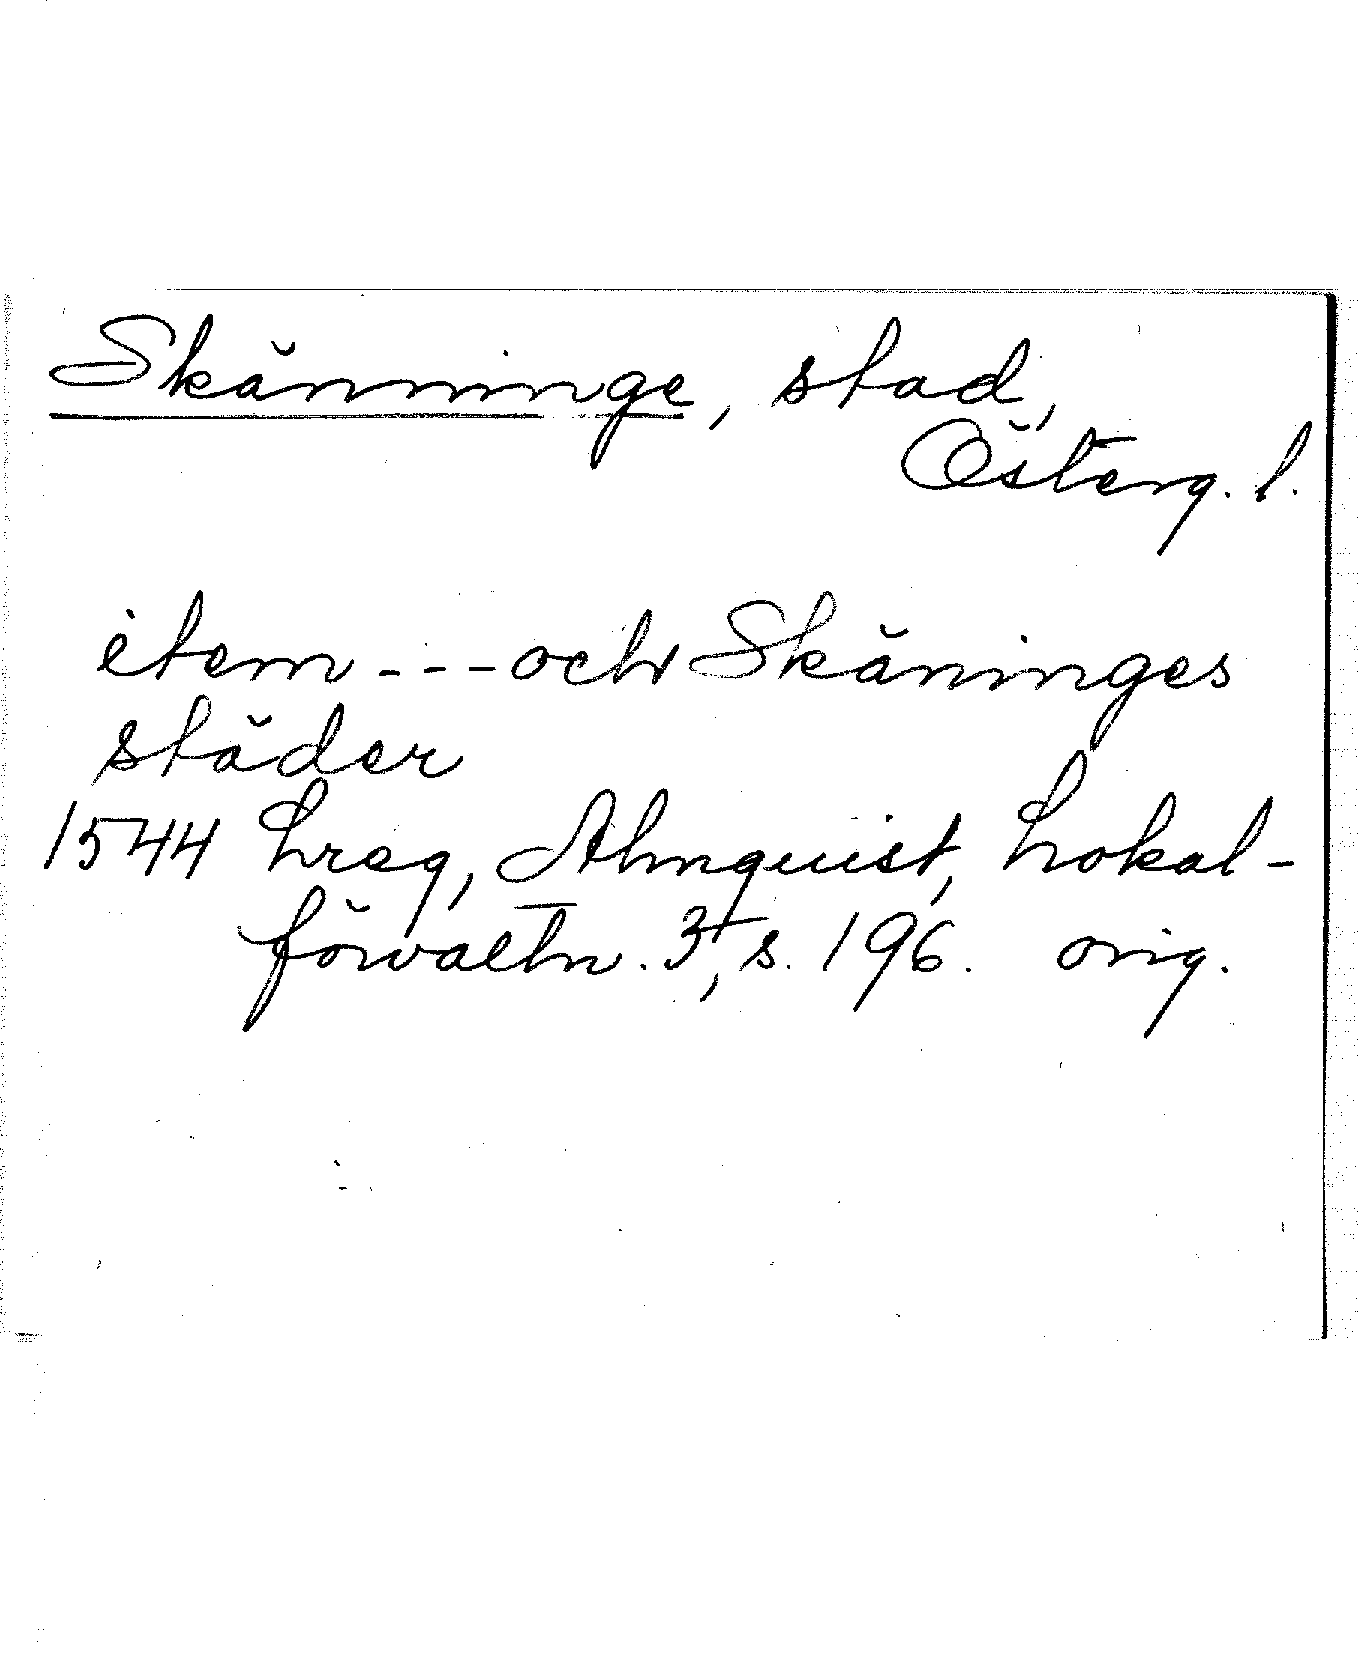 Skänninge, stad,
Österg. l.
item - - - och Skäninges
städer
1544 Lreg, Almquist, Lokal-
förvaltn. 3, s. 196. orig.